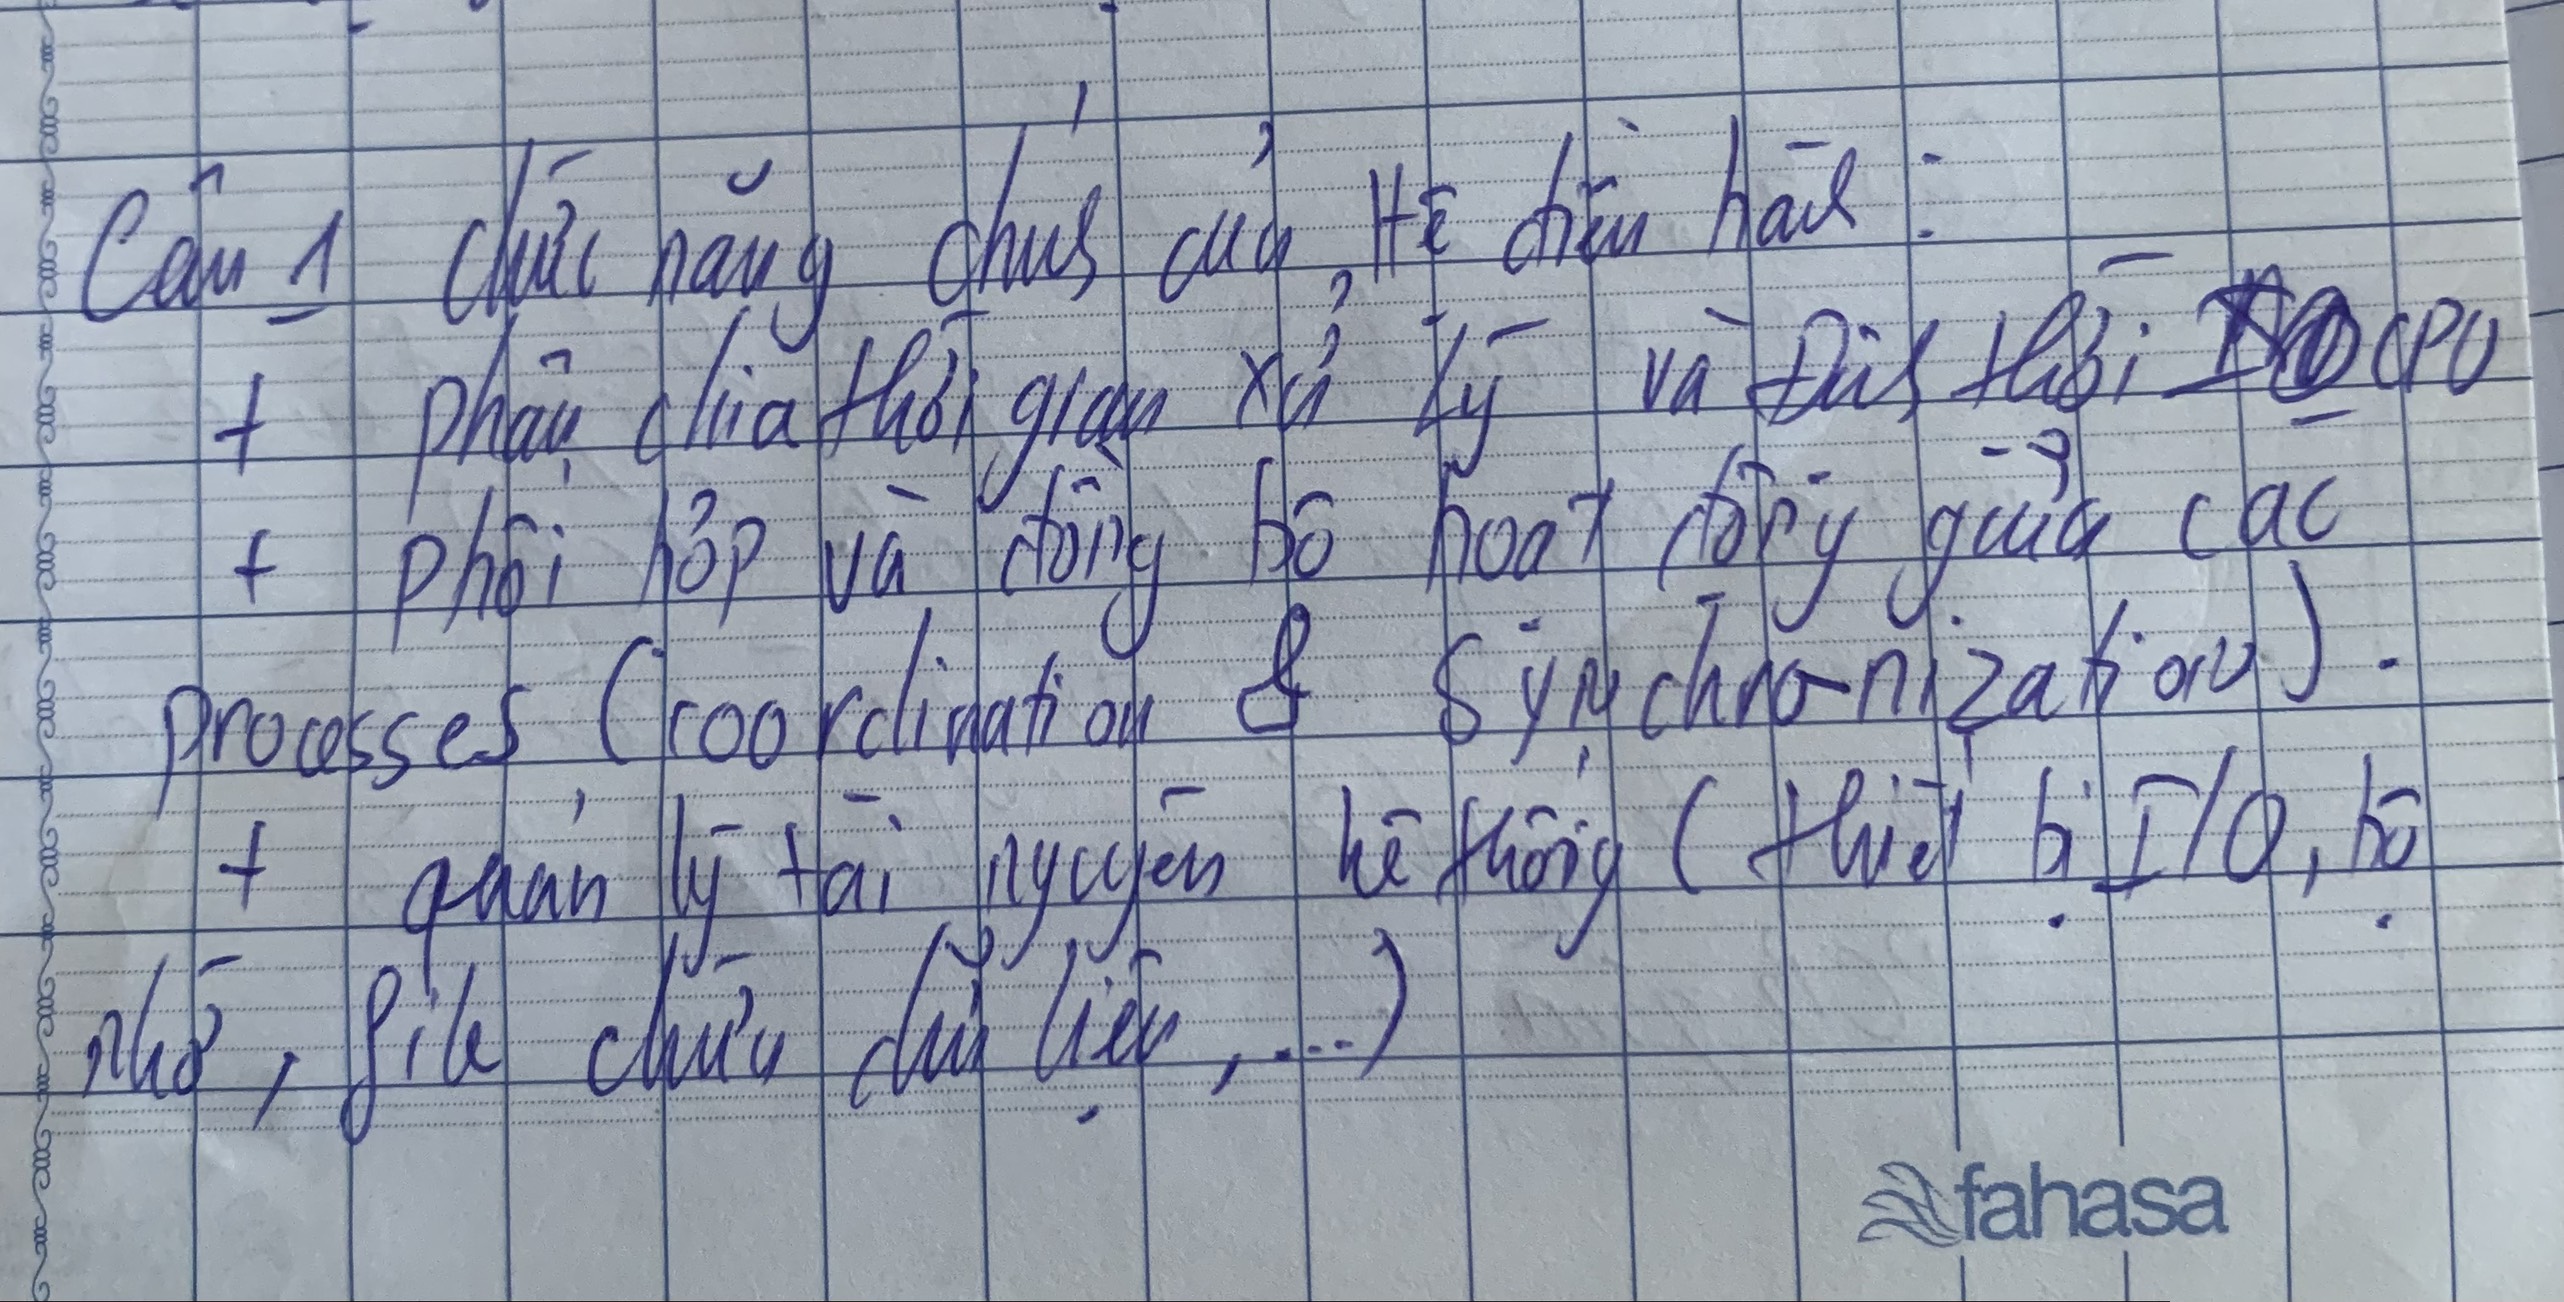 Câu 1 chức năng chính của Hệ điều hành :
+ phân chia thời gian xử lý và Định thời CPU
+ phối hợp và đồng bộ hoạt động giữa các
processes (coordination & Synchro-nization).
+ quản lý tài nguyên hệ thống ( thiết bị I/O, bộ
nhớ, file chứa dữ liệu, ...)
fahasa